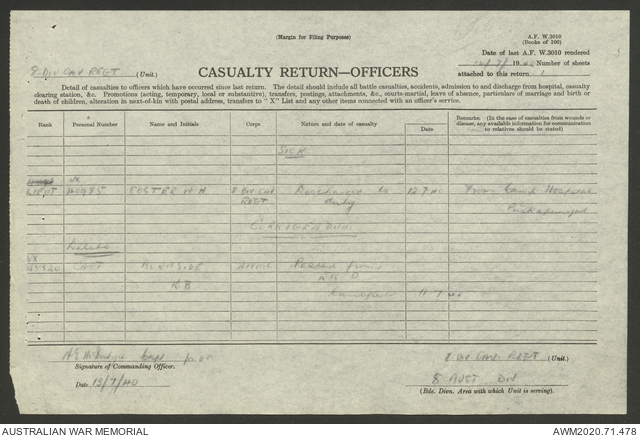 (Margin for Filing Purposes)
A.F. W.3010
(Books of 100)
Date of last A.F. W.3010 rendered
8 DIV CAV REGT (Unit.)
CASUALTY RETURN—OFFICERS
/7/ 1940 Number of sheets
attached to this return 1
Detail of casualties to officers which have occurred since last return. The detail should include all battle casualties, accidents, admission to and discharge from hospital, casualty
clearing station, &c. Promotions (acting, temporary, local or substantive), transfers, postings, attachments, &c., courts-martial, leave of absence, particulars of marriage and birth or
death of children, alteration in next-of-kin with postal address, transfers to "X" List and any other items connected with an officer's service.
Rank
Personal Number
Name and Initials
Corps
Nature and date of casualty
Date
Remarks (In the case of casualties from wounds or
disease, any available information for communication
to relatives should be stated)
SICK
VX
LIEUT FOSTER W H 8 DIV CAV Discharged to 12.7.40 From Camp Hospital
REGT Duty Puckapunyal
CORRIGENDUM
Delete
VX
CAPT BURNSIDE
R B
11.7.40
Capt
Signature of Commanding Officer.
Date 13/7/40
8 DIV CAV REGT (Unit.)
8 AUST DIV
(Bde. Divn. Area with which Unit is serving).
AUSTRALIAN WAR MEMORIAL
AWM2020.71.478